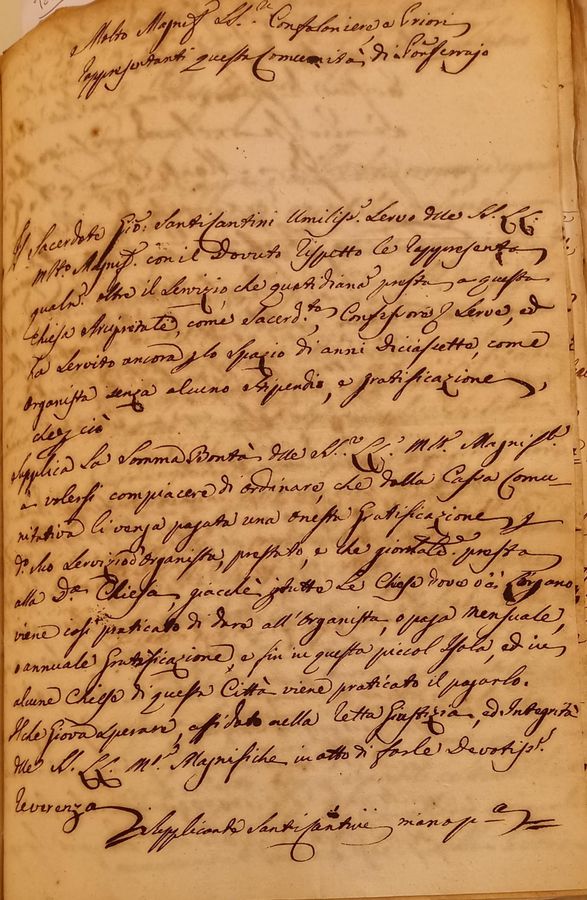 Molto Magnif.ci SS.ri Confaloniere e Priori
rappresentanti questa Comunità di Portferrajo
Il Sacerdote Gio: Santi Santini Umiliss.o Servo delle SS. LL.
Mlto Magnif.e con il dovuto rispetto le rappresenta
qualm.e oltre il servizio, che quotidiana.e presta a questa
Chiesa Arcipretale, come Sacerd.te, Confessore, e Serve, ed
ha servito ancora p lo spazio di anni diciasette, come
Organista senza alcuno stipendio, e gratificazione,
che p ciò
Supplica la Somma Bontà delle SS.rie LL. Mlt. Magnif.e
a volersi compiacere di ordinare, che dalla Cassa Comu-
nitativa li venga pagata una onesta Gratificazione p
d.o suo servizio d'Organista, prestato, e che giornalm.e presta
alla D.a Chiesa giacchè p tutte le Chiese dove v'è l'organo
viene così praticato di dare all'Organista, o paga mensuale,
o annuale Gratificazione, e fin in questa piccol' Isola, ed in
alcune Chiese di questa Città viene praticato il pagarlo.
Il che Giova sperare, affidato nella retta Giustizia, ed Integrità
delle SS. LL. M.to Magnifiche in atto di farle Devotiss.a
reverenza
Supplicante Santi Santini mano p.a